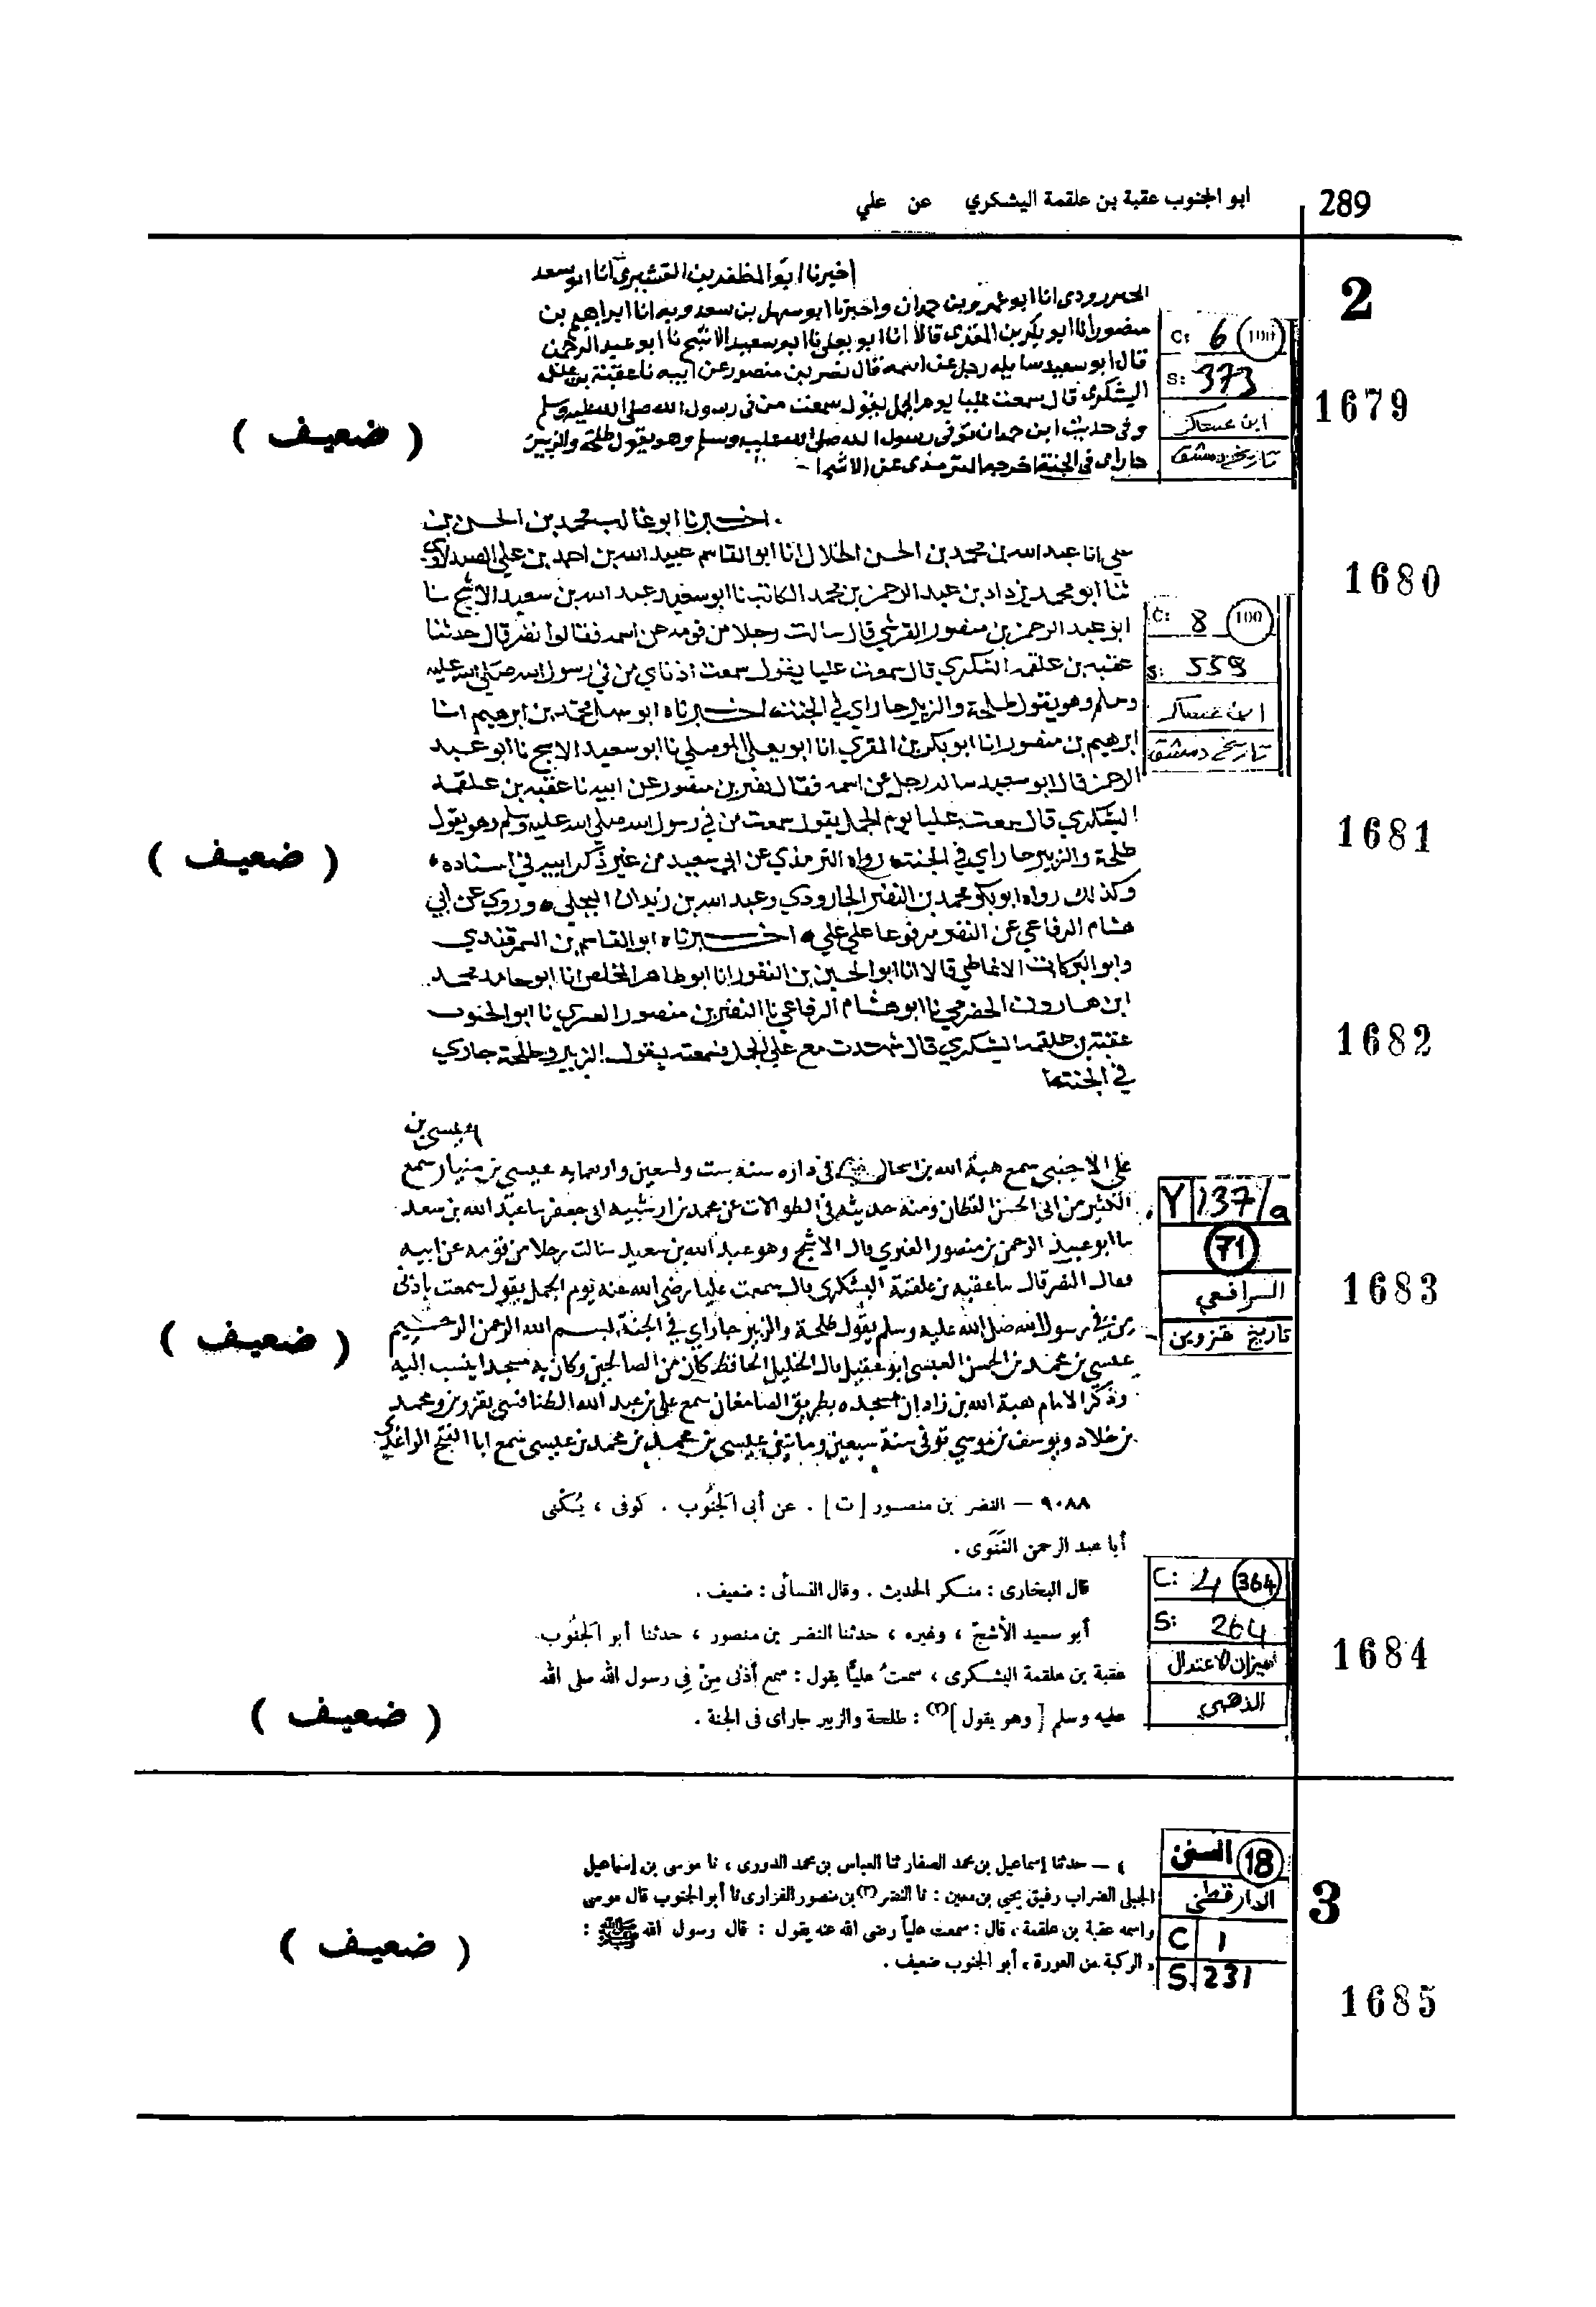 289
ابو الجنوب عقبة بن علقمة اليشكري عن علي
2
اخبرنا ابو المظفر بن القشيري انا ابو سعد
انا ابو عمرو بن حمدان واخبرنا ابو سهل بن سعدويه انا ابراهيم بن
منصور انا ابو بكر بن المقرى قالا انا ابو يعلى نا ابو سعيد الاشج نا ابو عبد الرحمن
قال ابو سعيد رجل عن اسمه قال نضر بن منصور عن ابيه نا عقبة بن علقمة
اليشكرى قال سمعت عليا يوم الجمل يقول سمعت من فى رسول الله صلى الله عليه وسلم
وفى حديث ابن حمدان فى رسول الله صلى الله عليه وسلم وهو يقول طلحة والزبير
جاراى فى الجنة اخرجه الترمذى عن الاشج
C: 6 100
S: 373
ابن عساكر
تاريخ دمشق
1679
( ضعيف )
اخبرنا ابو غالب محمد بن الحسن بن
على انا عبد الله بن محمد بن الحسن الخلال انا ابو القاسم عبيد الله بن احمد بن علي الصيدلاني
ثنا ابو محمد يزداد بن عبد الرحمن بن محمد الكاتب نا ابو سعيد عبد الله بن سعيد الاشج نا
ابو عبد الرحمن بن منصور القرشي قال سالت رجلا من قومه عن اسمه فقالوا نضر قال حدثنا
عقبه بن علقمه اليشكري قال سمعت عليا يقول سمعت اذناي من في رسول الله صلى الله عليه
وسلم وهو يقول طلحة والزبير جاراي في الجنة اخبرناه ابو سهل محمد بن ابرهيم انا
ابرهيم بن منصور انا ابو بكر بن المقري انا ابو يعلي الموصلي نا ابو سعيد الاشج نا ابو عبد
الرحمن قال ابو سعيد رجل عن اسمه فقال نضر بن منصور عن ابيه نا عقبه بن علقمه
اليشكري قال سمعت عليا يوم الجمل يقول سمعت من في رسول الله صلى الله عليه وسلم وهو يقول
طلحة والزبير جاراي في الجنة رواه الترمذي عن ابي سعيد من غير ذكر ابيه في اسناده
وكذلك رواه ابو بكر محمد بن النضر الجارودي وعبد الله بن زيدان البجلي وروي عن أبي
هشام الرفاعي عن النضر مرفوعا على علي اخبرناه ابو القاسم بن السمرقندي
وابو البركات الانماطي قالا انا ابو الحسين بن النقور انا ابو طاهر المخلص انا ابو حامد محمد
ابن هارون الحضرمي نا ابو هشام الرفاعي نا النضر بن منصور نا ابو الجنوب
عقبة بن علقمه اليشكري قال شهدت مع علي الجمل فسمعته يقول الزبير وطلحة جاري
في الجنة
C: 8 100
S: 559
ابن عساكر
تاريخ دمشق
1680
1681
( ضعيف )
1682
عيسى بن
على سمع هبة الله بن في داره سنة ست وتسعين واربعمايه عيسى بن سمع
الكثير من ابى الحسن القطان ومنه حديثه في الطوالات عن محمد بن ابى جعفر نا عبد الله بن سعد
نا ابو عبد الرحمن بن منصور قال الاشج وهو عبد الله بن سعيد سالت رجلا من قومه عن ابيه
فقال النضر قال نا عقبه بن علقمة اليشكرى قال سمعت عليا رضى الله عنه يوم الجمل يقول سمعت باذنى
من في رسول الله صلى الله عليه وسلم يقول طلحة والزبير جاراي في الجنة بسم الله الرحمن الرحيم
عيسى بن محمد بن الحسن العبسى ابو عقيل قال الخليل الحافظ كان من الصالحين وكان به مسجدا ينسب اليه
وذكر الامام هبة الله بن زاد ان مسجده بطريق الصامغان سمع على بن عبد الله الطنافسى بقزوين ومحمد
بن خلاد ويوسف بن موسى توفى سنة سبعين وماتين عيسى بن بن محمد بن عيسى سمع ابا الفتح الراشدى
Y 137/a
71
الرافعي
تاريخ قزوين
1683
( ضعيف )
٩٠٨٨ — النضر بن منصور [ت] . عن أبى الجَنُوب . كوفى ، يُكْنى
أبا عبد الرحمن الغَنَوى .
قال البخارى : منكر الحديث . وقال النسائى : ضعيف .
أبو سعيد الأشجّ ، وغيره ، حدثنا النضر بن منصور ، حدثنا أبو الجَنُوب
عقبة بن علقمة اليشكرى ، سمعتُ عليًّا يقول : سمع أذنى مِنْ فِى رسول الله صلى الله
عليه وسلم [ وهو يقول ](٢) : طلحة والزبير جاراى فى الجنة .
C: 4 364
S: 264
ميزان الاعتدال
الذهبي
1684
( ضعيف )
3
٤ — حدثنا إسماعيل بن محمد الصفار ثنا العباس بن محمد الدورى ، نا موسى بن إسماعيل
الجبلى الضراب رفيق يحيى بن معين : نا النضر(٣) بن منصور الفزارى نا أبو الجنوب قال موسى
واسمه عقبة بن علقمة ، قال : سمعت علياً رضى الله عنه يقول : قال رسول الله ﷺ :
« الركبة من العورة ، أبو الجنوب ضعيف .
السنن 18
الدارقطني
C 1
S. 231
1685
( ضعيف )